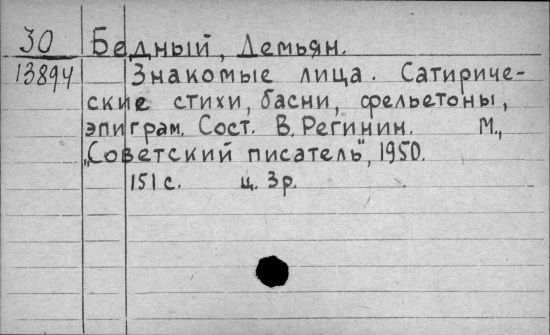 30 Бедный, Демьян.
13894 Знакомые лица. Сатириче-
ские стихи, басни, фельетоны,
эпиграм. Сост. В. Регинин. М.,
„Советский писатель", 1950.
151 с. ц. 3 р.